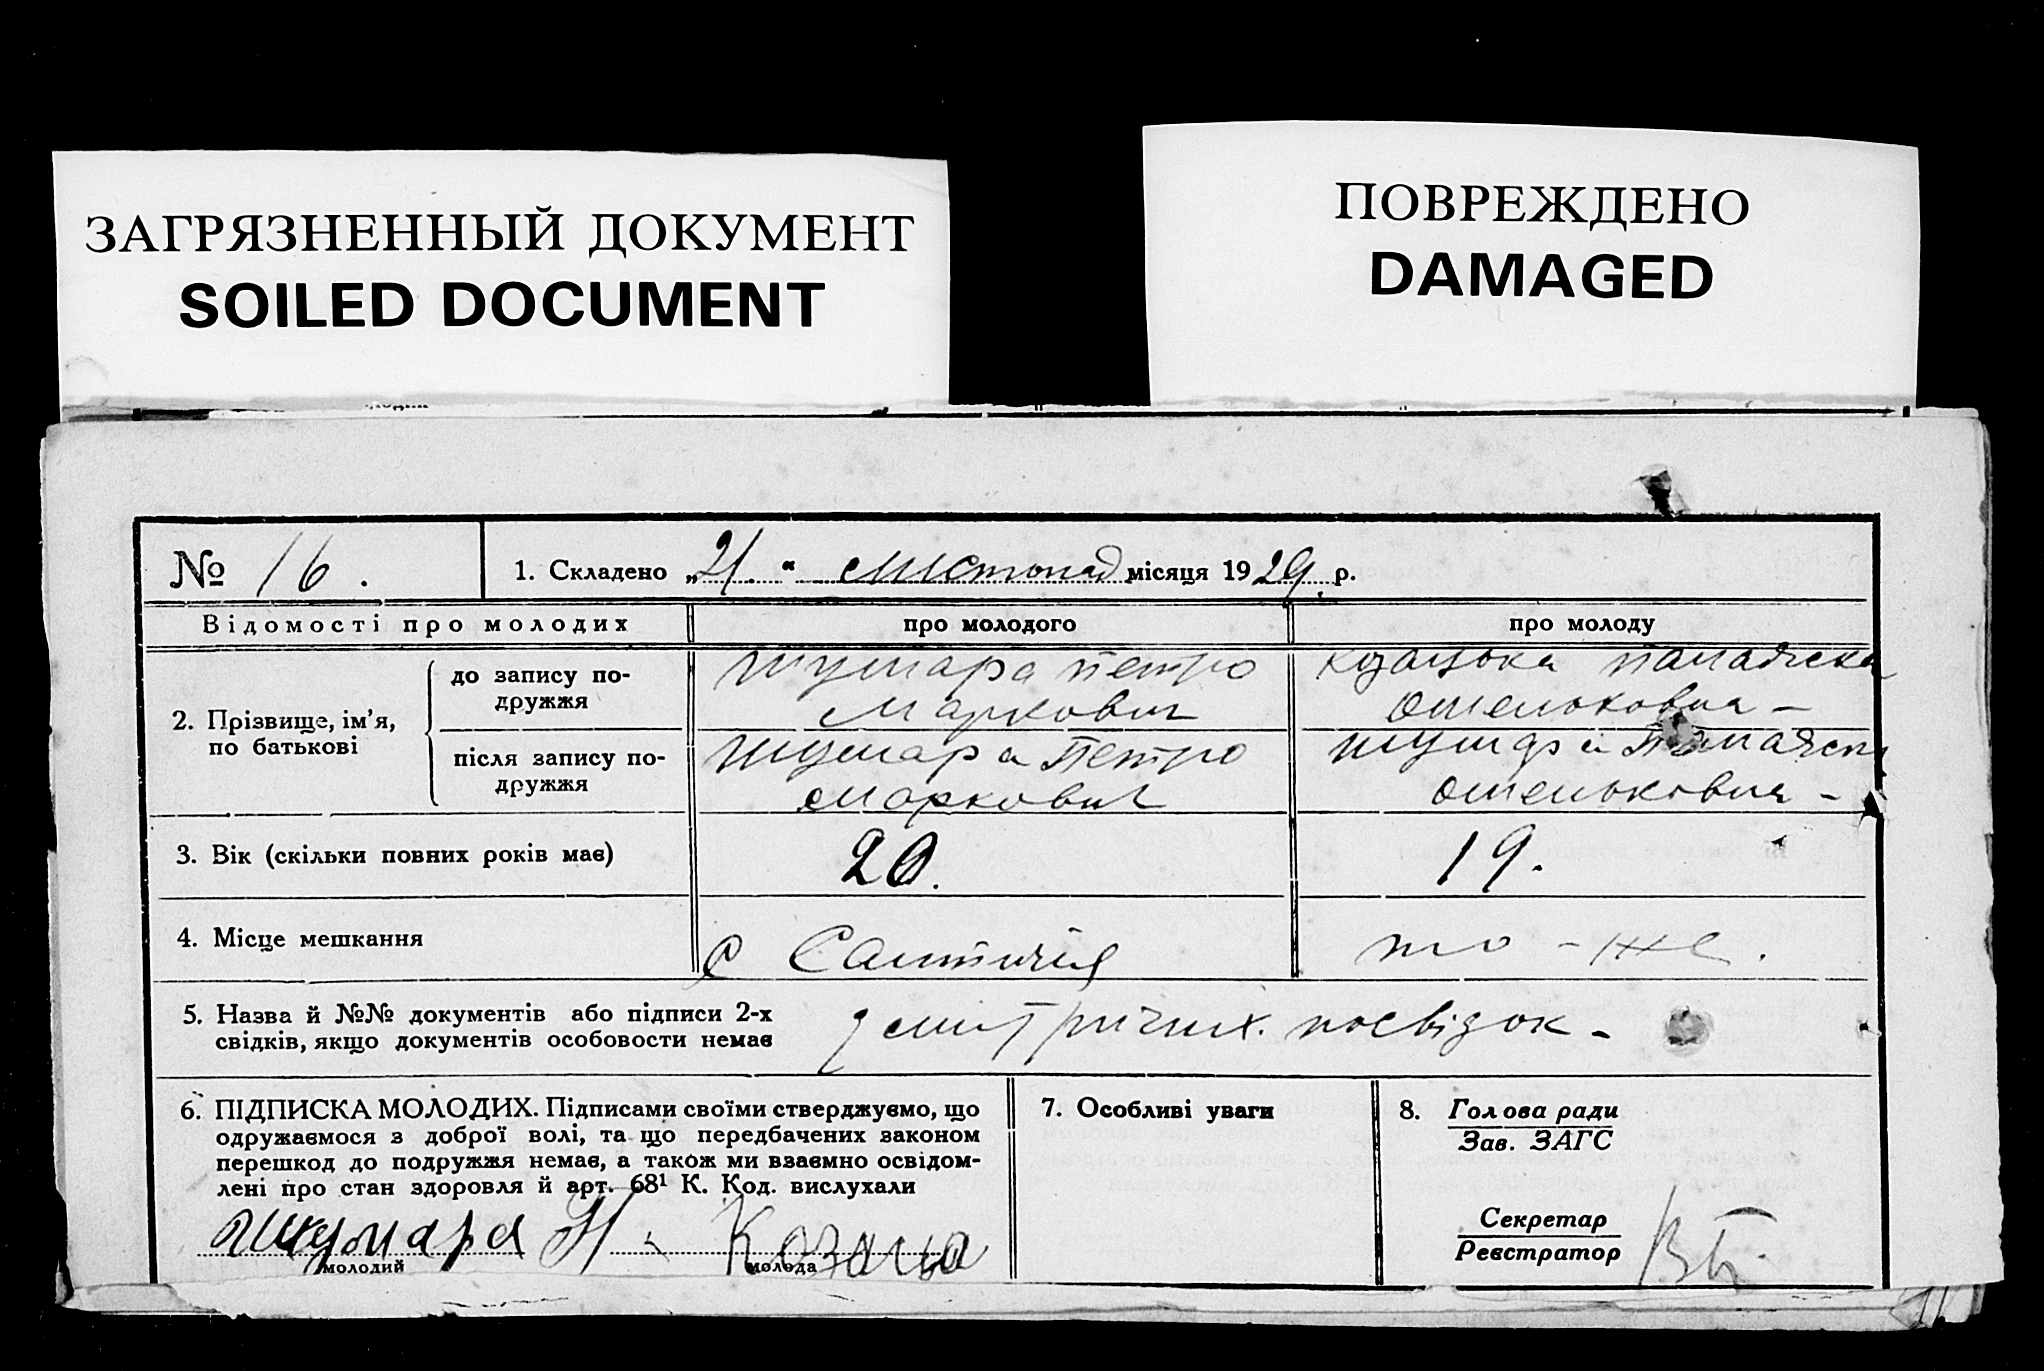 ЗАГРЯЗНЕННЫЙ ДОКУМЕНТ
SOILED DOCUMENT
ПОВРЕЖДЕНО
DAMAGED
№ 16. 1. Складено „21.“ листопад місяця 1929 р.
Відомості про молодих про молодого про молоду
2. Прізвище, ім’я, по батькові
до запису подружжя
Шумара Петро
Маркович
Омельковна –
після запису подружжя
Шумара Петро
Маркович
Шумара
Омельковна –
3. Вік (скільки повних років має) 20. 19.
4. Місце мешкання с то – же.
5. Назва й №№ документів або підписи 2-х
свідків, якщо документів особовости немає
метричних посвідок –
6. ПІДПИСКА МОЛОДИХ. Підписами своїми стверджуємо, що
одружаємося з доброї волі, та що передбачених законом
перешкод до подружжя немає, а також ми взаємно освідом-
лені про стан здоровля й арт. 68¹ К. Код. вислухали
Шумара П
молодий
молода
7. Особливі уваги
8. Голова ради
Зав. ЗАГС
Секретар
Реєстратор